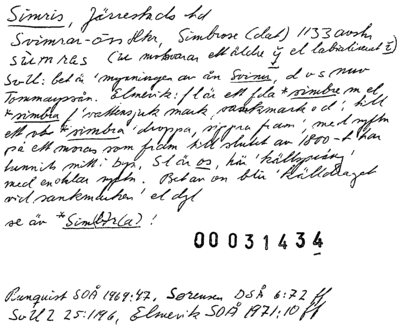 Simris, Järrestads hd
Svimrar-ós Hkr, Simbrose (dat) 1133 avskr
sümras (ü motsvarar ett äldre y el labialiserat i)
SvU: bet är 'mynningen av ån Svimr, dvs nuv
Tommarpsån. Elmevik: f l är ett fda *simbre m el
*simbra f 'vattensjuk mark, sankmark o d', till
ett vb *simbra 'droppa, sippra fram', med syftn
på ett moras som fram till slutet av 1800-t har
funnits mitt i byn. Sl är os, här 'källsprång'
med enahanda syftn. Bet av on blir 'källdraget
vid sankmarken' el dyl
se äv *Sim(b)r(a)!
00031434
Runquist SOÅ 1969:47, Sørensen DSÅ 6:72 ff
SvU 2 25:196, Elmevik SOÅ 1971:10 ff